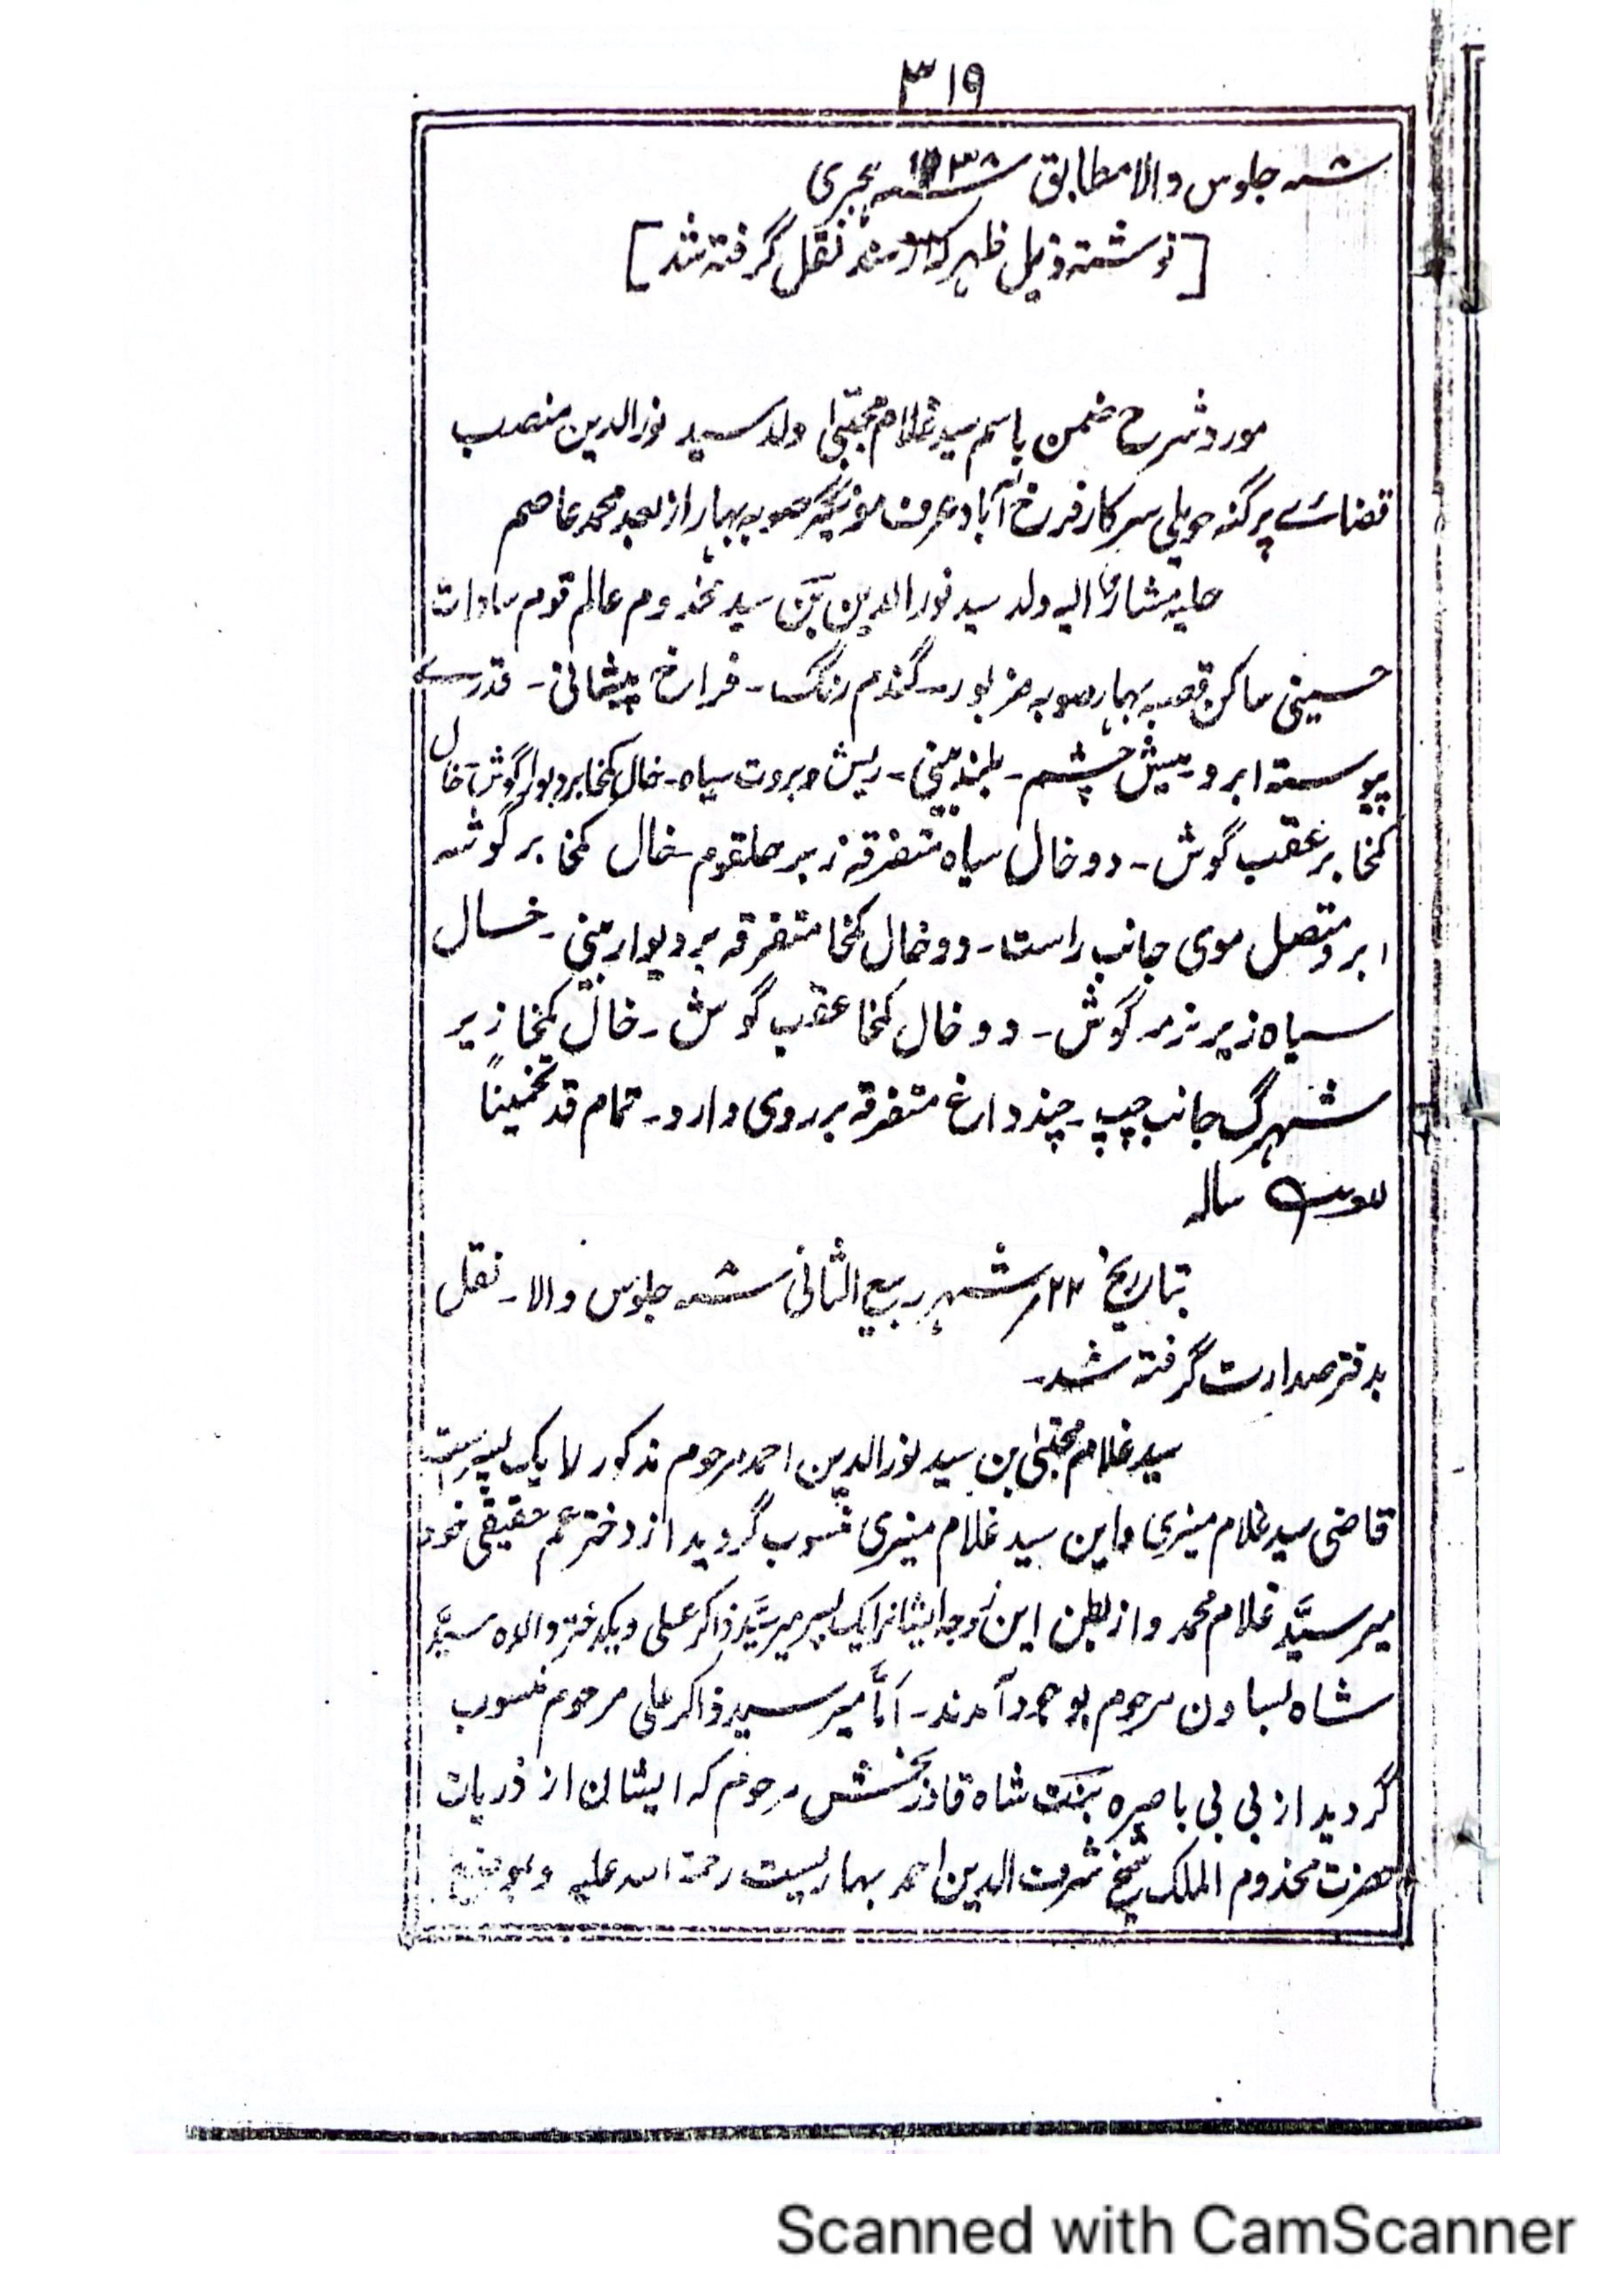 ۳۱۹
سنہ جلوس والا مطابق سنہ ہجری
[نوشتہ ذیل ظہر سند نقل گرفتہ شد]
مورد شرح ضمن باسم سید غلام مجتبیٰ ولد سید نورالدین منصب
قضائے پرگنہ حویلی سرکار فرخ آباد عرف مونگیر صوبہ بہار از بعد محمد عاصم
حلیہ مشار الیہ ولد سید نورالدین بن سید مخدوم عالم قوم سادات
حسینی ساکن قصبہ بہار صوبہ مزبور ۔ گندم رنگ ۔ فراخ پیشانی ۔ قدرے
پیوستہ ابرو ۔ میش چشم ۔ بلند بینی ۔ ریش و بروت سیاہ ۔ خال کنجا بر دیوار گوش خال
کنجا بر عقب گوش ۔ دو خال سیاہ متفرقہ زیر حلقوم ۔ خال کنجا بر گوشہ
ابرو متصل موی جانب راست ۔ دو خال کنجا متفرقہ بر دیوار بینی ۔ خال
سیاہ زیر نرمہ گوش ۔ دو خال کنجا عقب گوش ۔ خال کنجا زیر
شہرگ جانب چپ ۔ چند داغ متفرقہ بر روی دارد ۔ تمام قد تخمیناً
سالہ
بتاریخ ۲۲؍ شہر ربیع الثانی سنہ جلوس والا ۔ نقل
بدفتر صدارت گرفتہ شد ۔
سید غلام مجتبیٰ بن سید نورالدین احمد مرحوم مذکور را یک پسر است
قاضی سید غلام منیری و این سید غلام منیری منسوب گردید از دختر عم حقیقی خود
میر سیّد غلام محمد و از بطن این زوجہ ایشانرا یک پسر میر سیّد ذاکر علی و یکدختر والدہ سیّد
شاہ بساون مرحوم بوجود آمدند ۔ امّا میر سید ذاکر علی مرحوم منسوب
گردید از بی بی باصرہ بنت شاہ قادر بخش مرحوم کہ ایشان از ذریات
حضرت مخدوم الملک شیخ شرف الدین احمد بہاریست رحمۃ اللہ علیہ و بموضع
Scanned with CamScanner